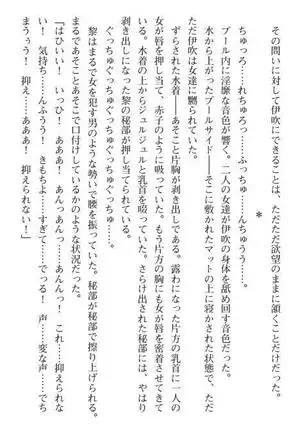 その問いに対して伊吹にできることは、ただ欲望のままに頷くことだけだった。
＊
ちゅっろ……れちゅろっ……ふっちゅ……んちゅうう……。
プール内に淫靡な音色が響く。二人の女達が伊吹の身体を舐め回す音色だった。
水から上がったプールサイド――そこに敷かれたマットの上に寝かされた状態で、ただ
ただ伊吹は女達に嬲られていた。
ずらされた水着――あそこと片胸が剥き出しである。露わになった片方の乳首に一人の
女が唇を押し当て、赤子のように吸っていた。もう片方の胸にも女が唇を密着させてき
ている。水着の上からジュルジュルと乳首を啜っていた。さらけ出された秘部には、やはり
剥き出しになった黎の秘部が押し当てられている。
ぐっちゅぐっちゅぐっちゅぐっちゅぐっちゅ――。
黎はまるで女を犯す男のような勢いで腰を振っていた。秘部が秘部で擦り上げられる。
まるであそことあそこで口付けしているかのような状況だった。
「はひいい！　いっひ！　あああ！　あんっあんっ……あんんっ！　これ……抑えられな
い！　気持ち……んふうう！　きもちよ……すぎて……でっる！　声……変な声……でち
まうう！　抑え……あああ！　抑えられない！」